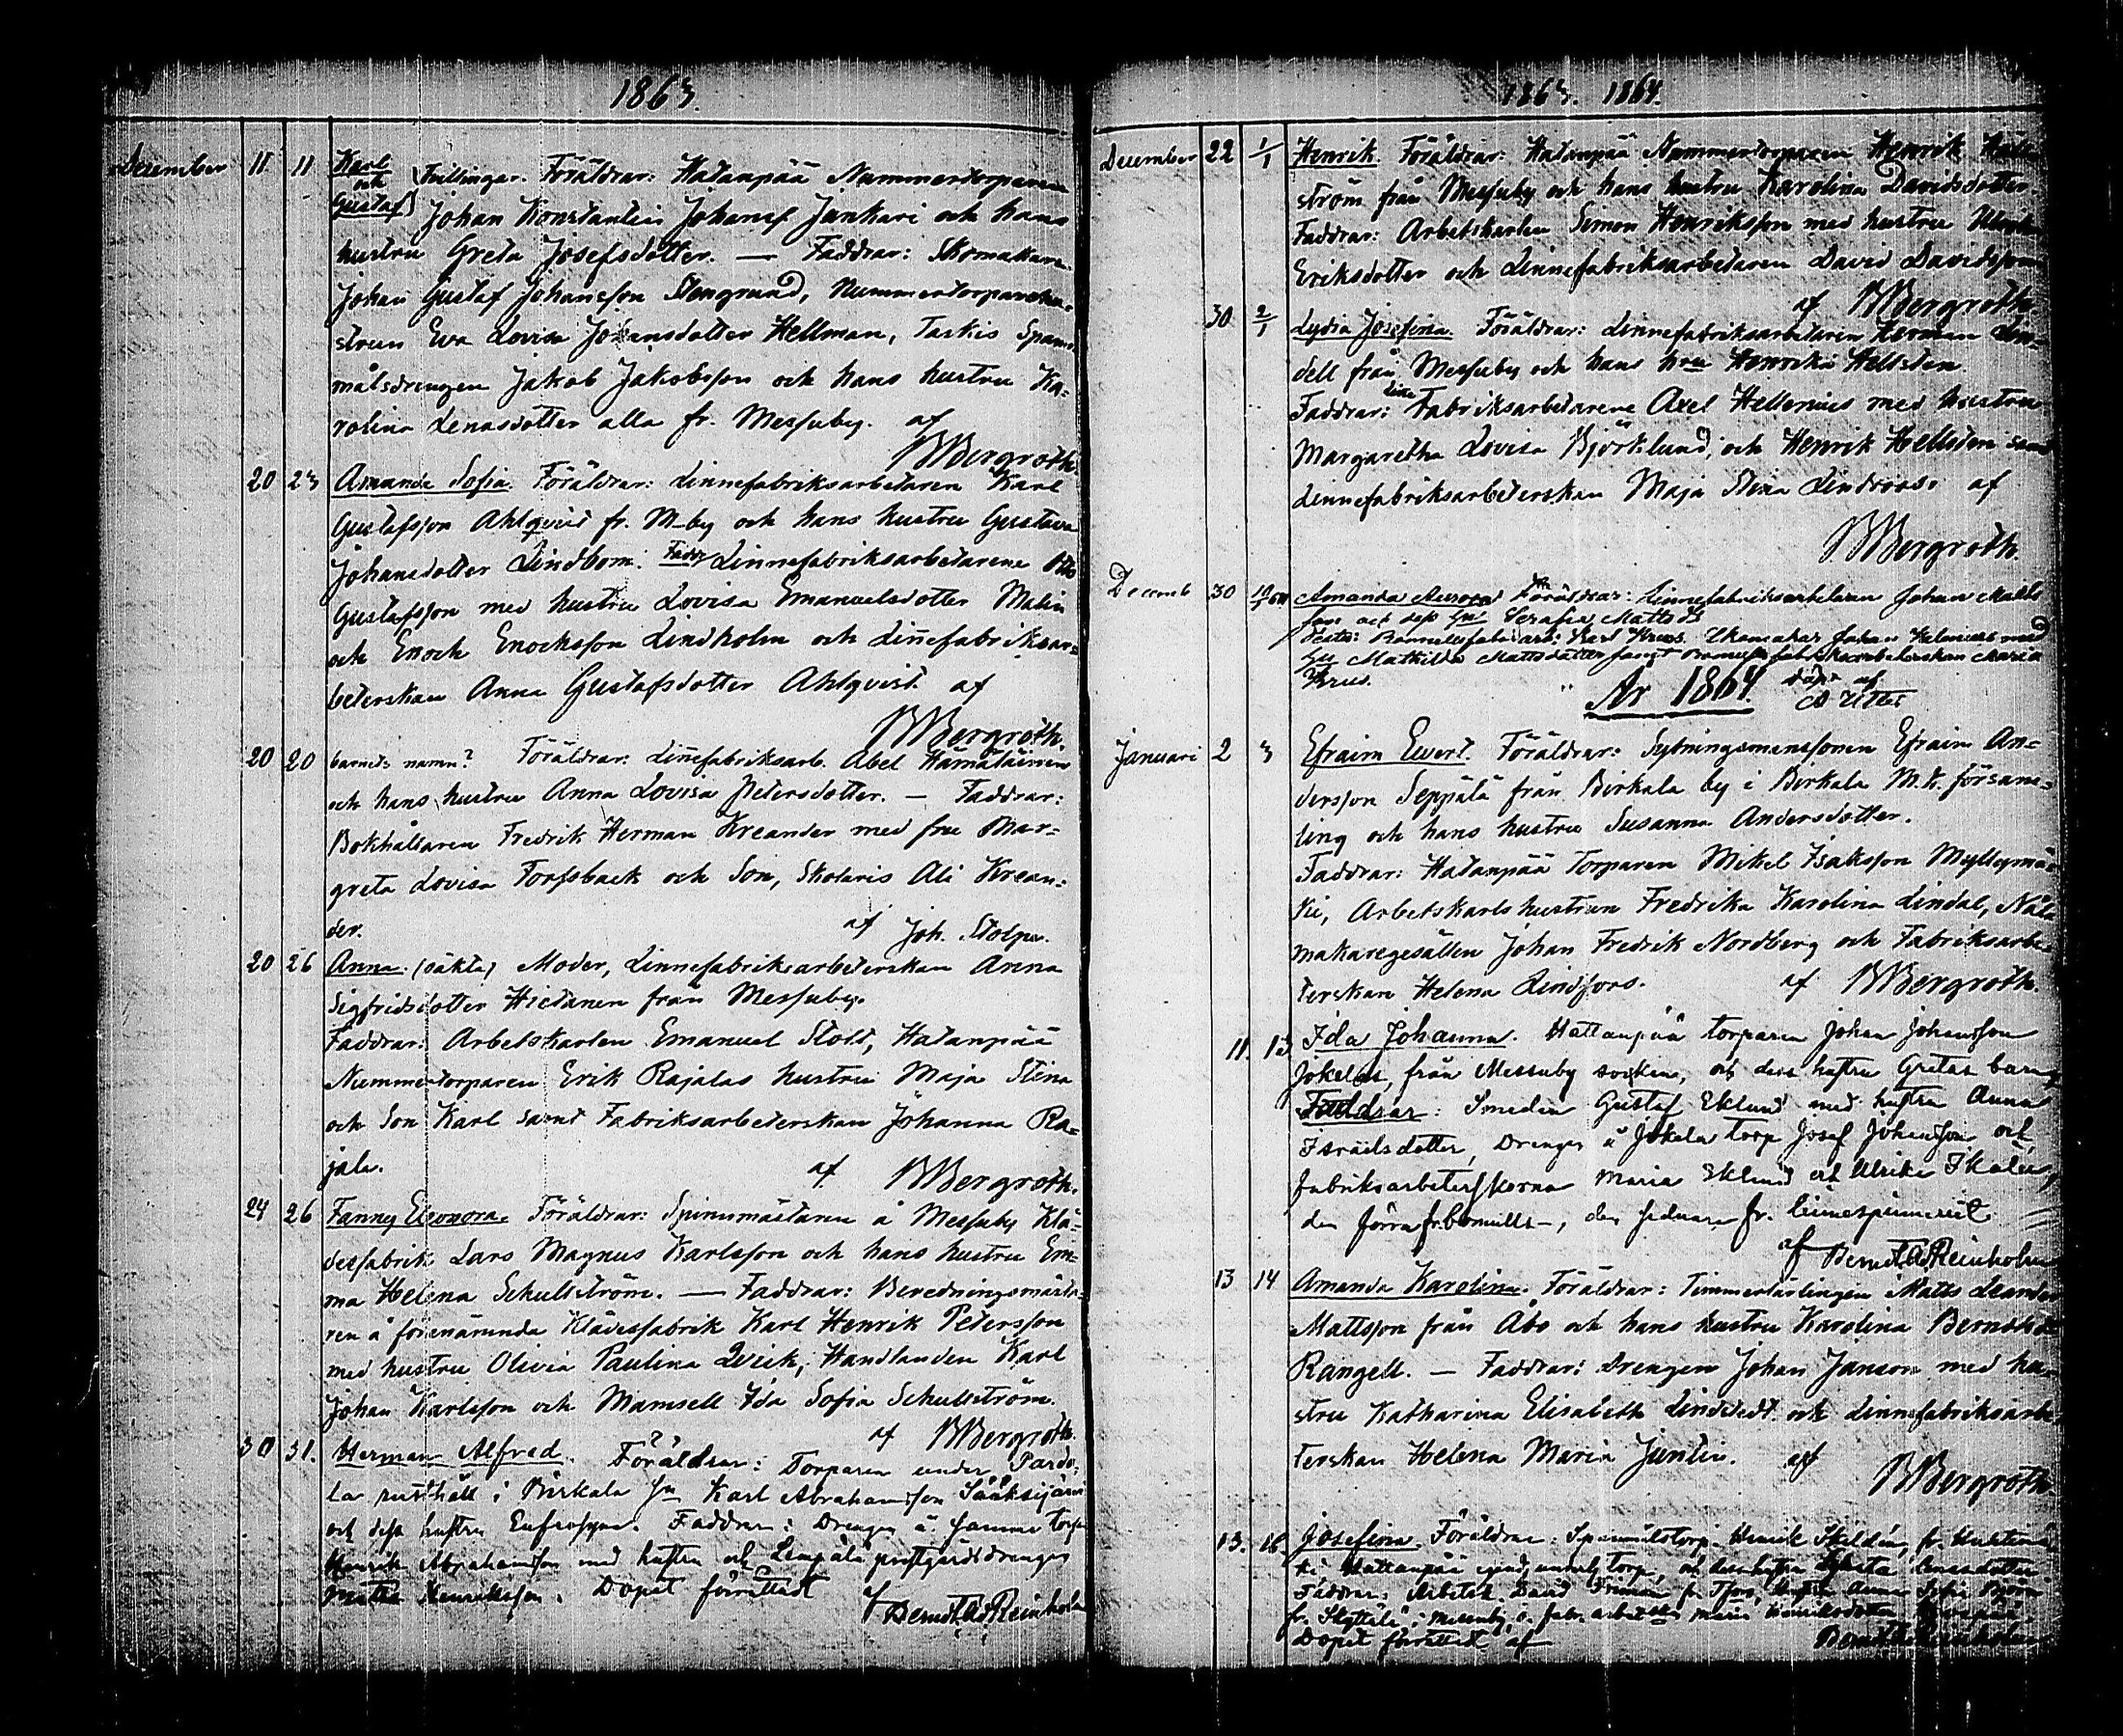 1863.
December 11 11 Karl och Gustaf Tvillingar. Föräldrar: Hatanpää Nummertorparen
Johan Konstantin Johansf Junkari och hans
hustru Greta Josefsdotter. — Faddrar: Skomakare
Johan Gustaf Johansson Stengrund, Nummertorparehu-
strun Eva Lovisa Johansdotter Hellman, Taskis Spann-
målsdrengen Jakob Jakobsson och hans hustru Ka-
rolina Lenasdotter alla fr. Messuby. af
BBergroth.
20 23 Amanda Sofia. Föräldrar: Linnefabriksarbetaren Karl
Gustafsson Ahlqvist fr. M-by och hans hustru Gustava
Johansdotter Lindbom. Fadd. Linnefabriksarbetarene Otto
Gustafsson med hustru Lovisa Emanuelsdotter Malin
och Enoch Enochsson Lindholm och Linnefabriksar-
beterskan Anna Gustafsdotter Ahlqvist. af
BBergroth.
20 20 barnets namn? Föräldrar: Linnefabriksarb. Abel Hämäläinen
och hans hustru Anna Lovisa Petersdotter. — Faddrar:
Bokhållaren Fredrik Herman Kreander med fru Mar-
greta Lovisa Forssback och Son, Skolaris Ali Krean-
der. af Joh. Stolpe.
20 26 Anna. (oäkta) Moder, Linnefabriksarbeterskan Anna
Sigfridsdotter Hietanen från Messuby.
Faddrar: Arbetskarlen Emanuel Stolt, Hatanpää
Nummertorparen Erik Rajalas hustru Maja Stina
och Son Karl samt Fabriksarbeterskan Johanna Ra-
jala. af BBergroth.
24 26 Fanny Eleonora. Föräldrar: Spinnmästaren å Messuby Klä-
desfabrik Lars Magnus Karlsson och hans hustru Em-
ma Helena Schullström. — Faddrar: Beredningsmästa-
ren å förenämnda Klädesfabrik Karl Henrik Petersson
med hustru Olivia Paulina Qveik, Handlanden Karl
Johan Karlsson och Mamsell Ida Sofia Schullström.
af BBergroth.
30 31. Herman Alfred. Föräldrar: Torparen under Pardo-
la rusthåll i Birkala sn Karl Abrahamsson Sääksjärvi
och dess hustru Eufrosyne. Faddrar: Drengen å samme torp
Henrik Abrahamsson med hustru och Lempälä prestgårdsdrengen
Henriksson. Dopet förrättadt
af Berndt Ad Reinholm
1863. 1864.
December 22 1/1 Henrik. Föräldrar: Hatanpää Nummertorparen Henrik
ström från Messuby och hans hustru Karolina Davidsdotter.
Faddrar: Arbetskarlen Simon Henriksson med hustru
Eriksdotter och Linnefabriksarbetaren David Davidsson
af BBergroth.
30 2/1 Lydia Josefina. Föräldrar: Linnefabriksarbetaren Herman Lin-
dell från Messuby och hans hru Henrika Hellsten.
Faddrar: Linne Fabriksarbetarene Axel Hellenius med hustru
Margaretha Lovisa Björklund, och Henrik Hellsten samt
Linnefabriksarbeterskan Maja Stina Lindroos. af
BBergroth.
Decemb 30 Amanda Aurora Föräldrar: Linnefabriksarbetaren Johan Matts
son och dess hu Serafia Mattsdr
Testes: Bomullsfabr.arb. Karl Krus. Skomakar Johan Helenius med
hu Mathilda Mattsdotter samt Bomullsfabriksarbeterskan Maria
Krus.
År 1864. döpt af
Januari 2 3 Efraim Evert. Föräldrar: Sytningsmanssonen Efraim An-
dersson Seppälä från Birkala by i Birkala M.K. försam-
ling och hans hustru Susanna Andersdotter.
Faddrar: Hatanpää Torparen Mikel Isaksson Myllymä-
ki, Arbetskarlshustrun Fredrika Karolina Lindal, Nåle
makaregesällen Johan Fredrik Nordberg och Fabriksarbe-
terskan Helena Lindfors. af BBergroth.
11. 13 Ida Johanna. Hattanpää torparen Johan Johansson
Jokela, från Messuby socken, och dess hustru Gretas barn,
Faddrar: Smeden Gustaf Eklund med hustru Anna
Israelsdotter, Drengen å Jokela torp Josef Johansson och
fabriksarbeterskorna Maria Eklund och Ulrika Ikalen,
den förra fr. bomulls-, den sednare fr. linnespinneriet
af Berndt Ad Reinholm
13 14 Amanda Karolina. Föräldrar: Timmerlärlingen Matts Leander
Mattsson från Åbo och hans hustru Karolina Berndtsdr
Rangell. — Faddrar: Drengen Johan Janson med hu-
stru Katharina Elisabeth Lindstedt och Linnefabriksarbe-
terskan Helena Maria Juntin. af
BBergroth
13. 16 Josefina. Föräldrar: Spannmålstorp. Henrik Skildén, fr.
Hattanpää egend. underl. torp, och dess hustru Lenasdotter.
Faddrar: Arbetsk. David Friman fr. Tfors, hustru Anna Sofia
fr. Messuby o. fabr.arbeterskan Maria Henriksdotter
Dopet förrättadt af Berndt Reinholm